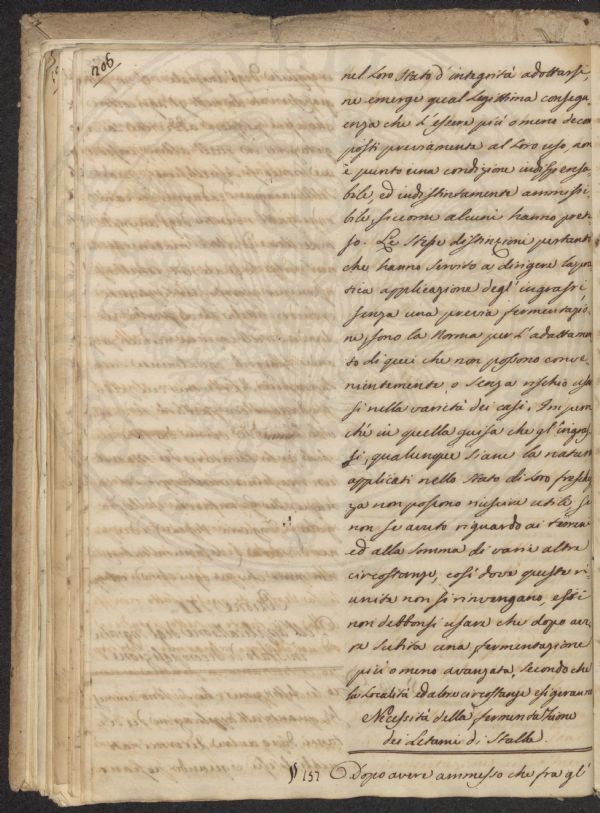 206
nel loro stato d'integrità adottarsi,
ne emerge qual legittima consegu
enza che l'essere più o meno decom
posti previamente al loro uso, non
è punto una condizione indispensa
bile, ed indistintamente ammissi
bile, siccome alcuni hanno prete
so. Le stesse distinzioni pertanto
che hanno servito a dirigere la pra
tica applicazione degl'ingrassi
senza una previa fermentazio
ne, sono la Norma per l'adattamen
to di quei che non possono conve
nientemente, o senza rischio usar
si nella varietà dei casi. Imper
ché in quella guisa che gl'ingras
si, qualunque siane la natura
applicati nello stato di loro freschez
za non possono riuscire utili se
non se avuto riguardo ai
ed alla somma di varie altre
circostanze, così dove queste ri
unite non si rinvengano, essi
non debbonsi usare che dopo ave
ra subita una fermentazione
più o meno avanzata, secondo che
la località ed altre circostanze esigeranno
Necessità della fermentazione
dei Letami di Stalla.
§ 157 Dopo avere ammesso che fra gl'